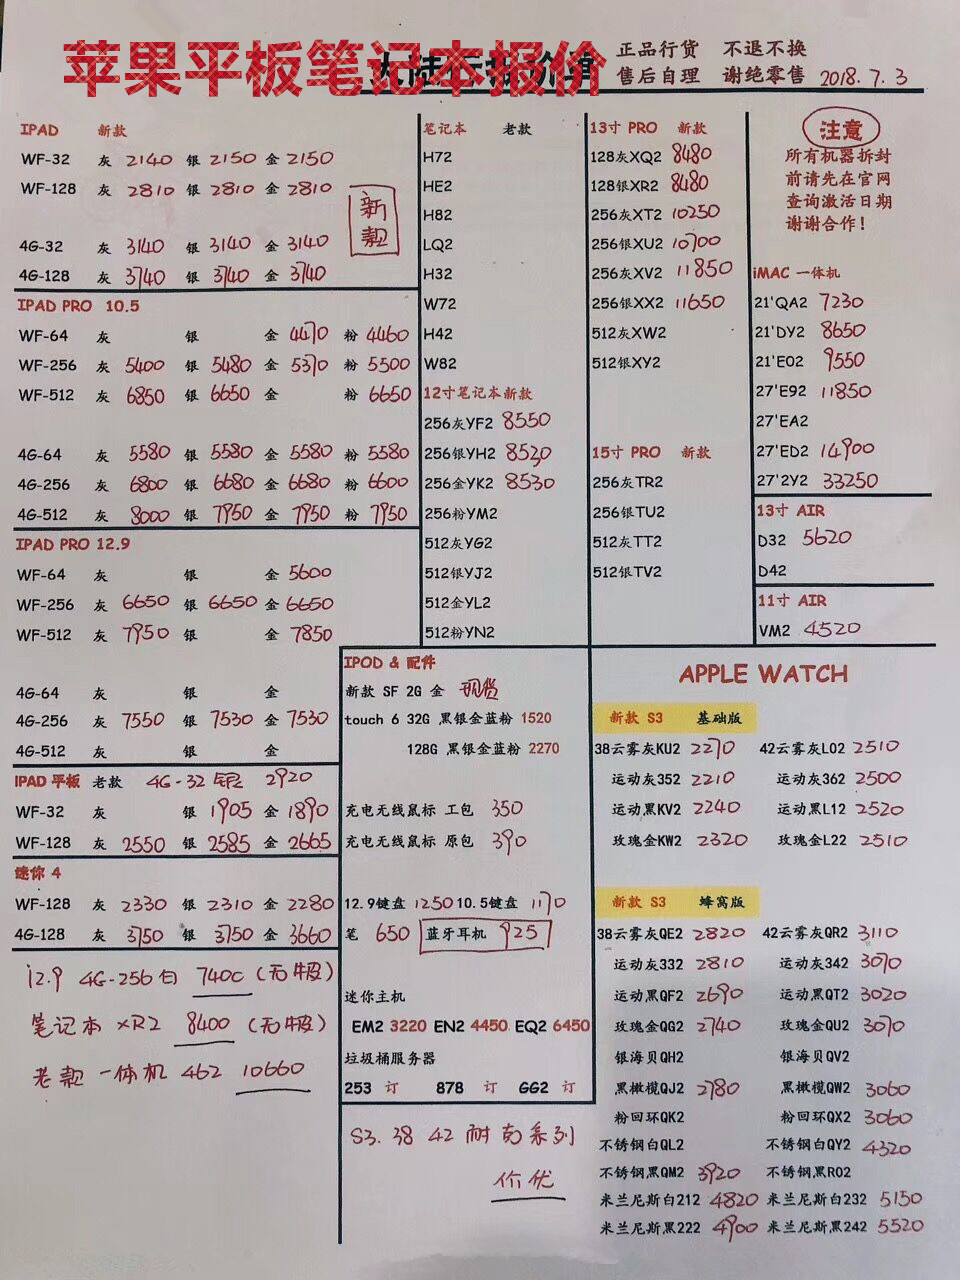 苹果平板笔记本报价
大陆行报价单
正品行货 不退不换
售后自理 谢绝零售 2018.7.3
IPAD 新款
WF-32 灰 2140 银 2150 金 2150
WF-128 灰 2810 银 2810 金 2810
新款
4G-32 灰 3140 银 3140 金 3140
4G-128 灰 3740 银 3740 金 3740
IPAD PRO 10.5
WF-64 灰 银 金 4470 粉 4460
WF-256 灰 5400 银 5480 金 5370 粉 5500
WF-512 灰 6850 银 6650 金 粉 6650
4G-64 灰 5580 银 5580 金 5580 粉 5580
4G-256 灰 6800 银 6680 金 6680 粉 6600
4G-512 灰 8000 银 7950 金 7950 粉 7950
IPAD PRO 12.9
WF-64 灰 银 金 5600
WF-256 灰 6650 银 6650 金 6650
WF-512 灰 7950 银 金 7850
4G-64 灰 银 金
4G-256 灰 7550 银 7530 金 7530
4G-512 灰 银 金
IPAD 平板 老款 4G-32 银 2920
WF-32 灰 银 1905 金 1890
WF-128 灰 2550 银 2585 金 2665
迷你 4
WF-128 灰 2330 银 2310 金 2280
4G-128 灰 3750 银 3750 金 3660
12.9 4G-256 白 7400 (无激)
笔记本 XR2 8400 (无激)
老款 一体机 462 10660
笔记本 老款
H72
HE2
H82
LQ2
H32
W72
H42
W82
12寸笔记本新款
256灰YF2 8550
256银YH2 8530
256金YK2 8530
256粉YM2
512灰YG2
512银YJ2
512金YL2
512粉YN2
13寸 PRO 新款
128灰XQ2 8480
128银XR2 8480
256灰XT2 10250
256银XU2 10700
256灰XV2 11850
256银XX2 11650
512灰XW2
512银XY2
15寸 PRO 新款
256灰TR2
256银TU2
512灰TT2
512银TV2
注意
所有机器拆封
前请先在官网
查询激活日期
谢谢合作!
iMAC 一体机
21'QA2 7230
21'DY2 8650
21'E02 9550
27'E92 11850
27'EA2
27'ED2 14900
27'2Y2 33250
13寸 AIR
D32 5620
D42
11寸 AIR
VM2 4520
IPOD & 配件
新款 SF 2G 金 现货
touch 6 32G 黑银金蓝粉 1520
128G 黑银金蓝粉 2270
充电无线鼠标 工包 350
充电无线鼠标 原包 390
12.9键盘 1250 10.5键盘 1170
笔 650 蓝牙耳机 925
迷你主机
EM2 3220 EN2 4450 EQ2 6450
垃圾桶服务器
253 订 878 订 GG2 订
S3. 38 42 耐克系列
价优
APPLE WATCH
新款 S3 基础版
38云雾灰KU2 2270 42云雾灰L02 2510
运动灰352 2210 运动灰362 2500
运动黑KV2 2240 运动黑L12 2520
玫瑰金KW2 2320 玫瑰金L22 2510
新款 S3 蜂窝版
38云雾灰QE2 2820 42云雾灰QR2 3110
运动灰332 2810 运动灰342 3070
运动黑QF2 2690 运动黑QT2 3020
玫瑰金QG2 2740 玫瑰金QU2 3070
银海贝QH2 银海贝QV2
黑橄榄QJ2 2780 黑橄榄QW2 3060
粉回环QK2 粉回环QX2 3060
不锈钢白QL2 不锈钢白QY2 4320
不锈钢黑QM2 3920 不锈钢黑R02
米兰尼斯白212 4820 米兰尼斯白232 5150
米兰尼斯黑222 4900 米兰尼斯黑242 5520